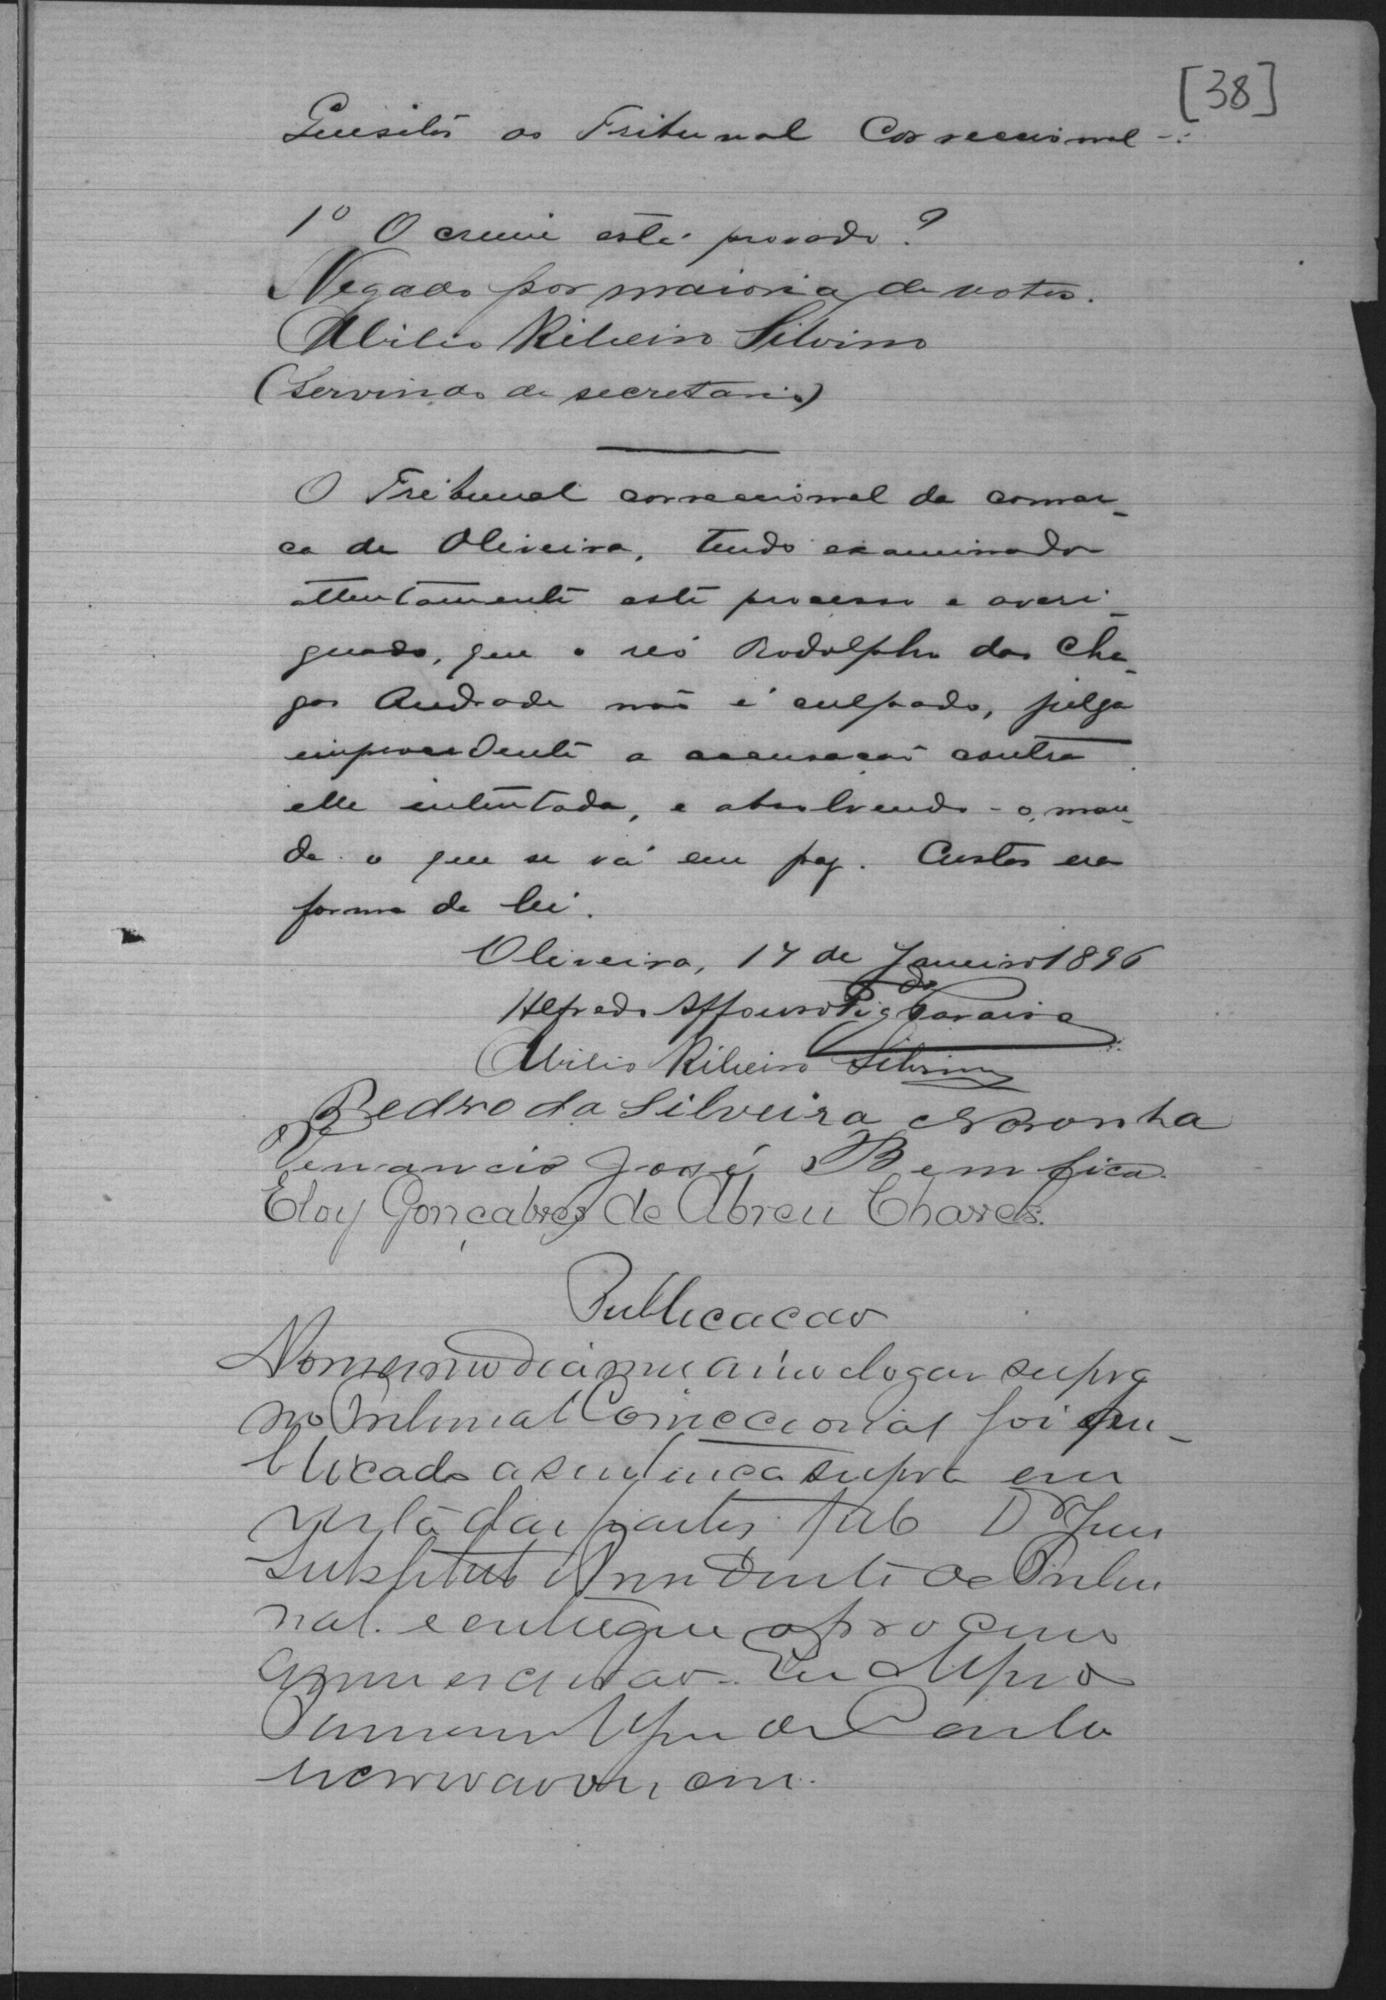 [38]
Quesitos ao Tribunal Correccional -:
1º O crime está provado?
Negado por maioria de votos.
Abilio Ribeiro Silvino
(Servindo de secretario)
O Tribunal correccional da comar-
ca de Oliveira, tendo examinado
attentamente este processo e averi-
guado, que o réo Rodolpho das Cha-
gas Andrade não é culpado, julga
improcedente a accusação contra
elle intentada, e absolvendo-o, man-
da o que se vá em paz. Custas na
forma da lei.
Oliveira, 17 de Janeiro 1896
Alfredo Affonso do
Abilio Ribeiro Silvino
Pedro da Silveira Noronha
Venancio José Bemfica.
Eloy Gonçalves de Abreu Chaves.
Publicacao
No mesmo dia mez anno e logar supra
no Tribunal Correccional foi pu-
blicado a sentença supra em
vista das partes pelo Dr Juiz
Substituto Presidente do Tribu
nal. e entregue o processo
Eu